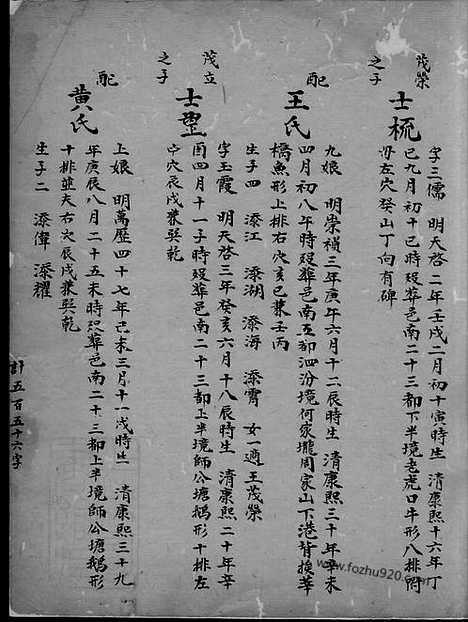 茂榮
之子
士梳
字三儒 明天啓二年壬戌二月初十寅時生 清康熙十六年丁
巳九月初十巳時歿葬邑南二十三都下半境老虎口牛形八排附
母左穴癸山丁向有碑
配
王氏
九娘 明崇禎三年庚午六月十二辰時生 清康熙三十年辛未
四月初八午時歿葬邑南五都泗汾境何家壠周家山下港背挨華
橋魚形上排右穴亥巳兼壬丙
生子四 添江 添湖 添海 添霄 女一適王茂榮
茂立
之子
士
字玉霞 明天啓三年癸亥六月十八辰時生 清康熙二十年辛
酉四月十一子時歿葬邑南二十三都上半境師公塘鵝形十排左
穴辰戌兼巽乾
配
黃氏
上娘 明萬歷四十七年己未三月十一戌時生 清康熙三十九
年庚辰八月二十五未時歿葬邑南二十三都上半境師公塘鵝形
十排並夫右穴辰戌兼巽乾
生子二 添偉 添耀
計五百五十六字
www.fozhu920.com